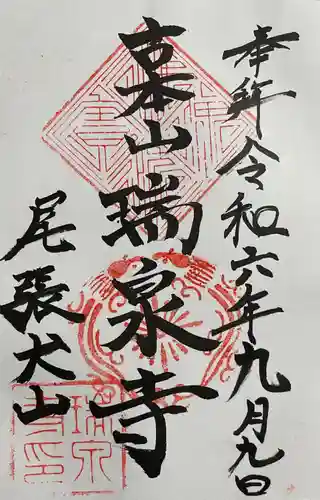 奉拝 令和六年九月九日
青龍山 瑞泉寺
尾張犬山
瑞泉寺印